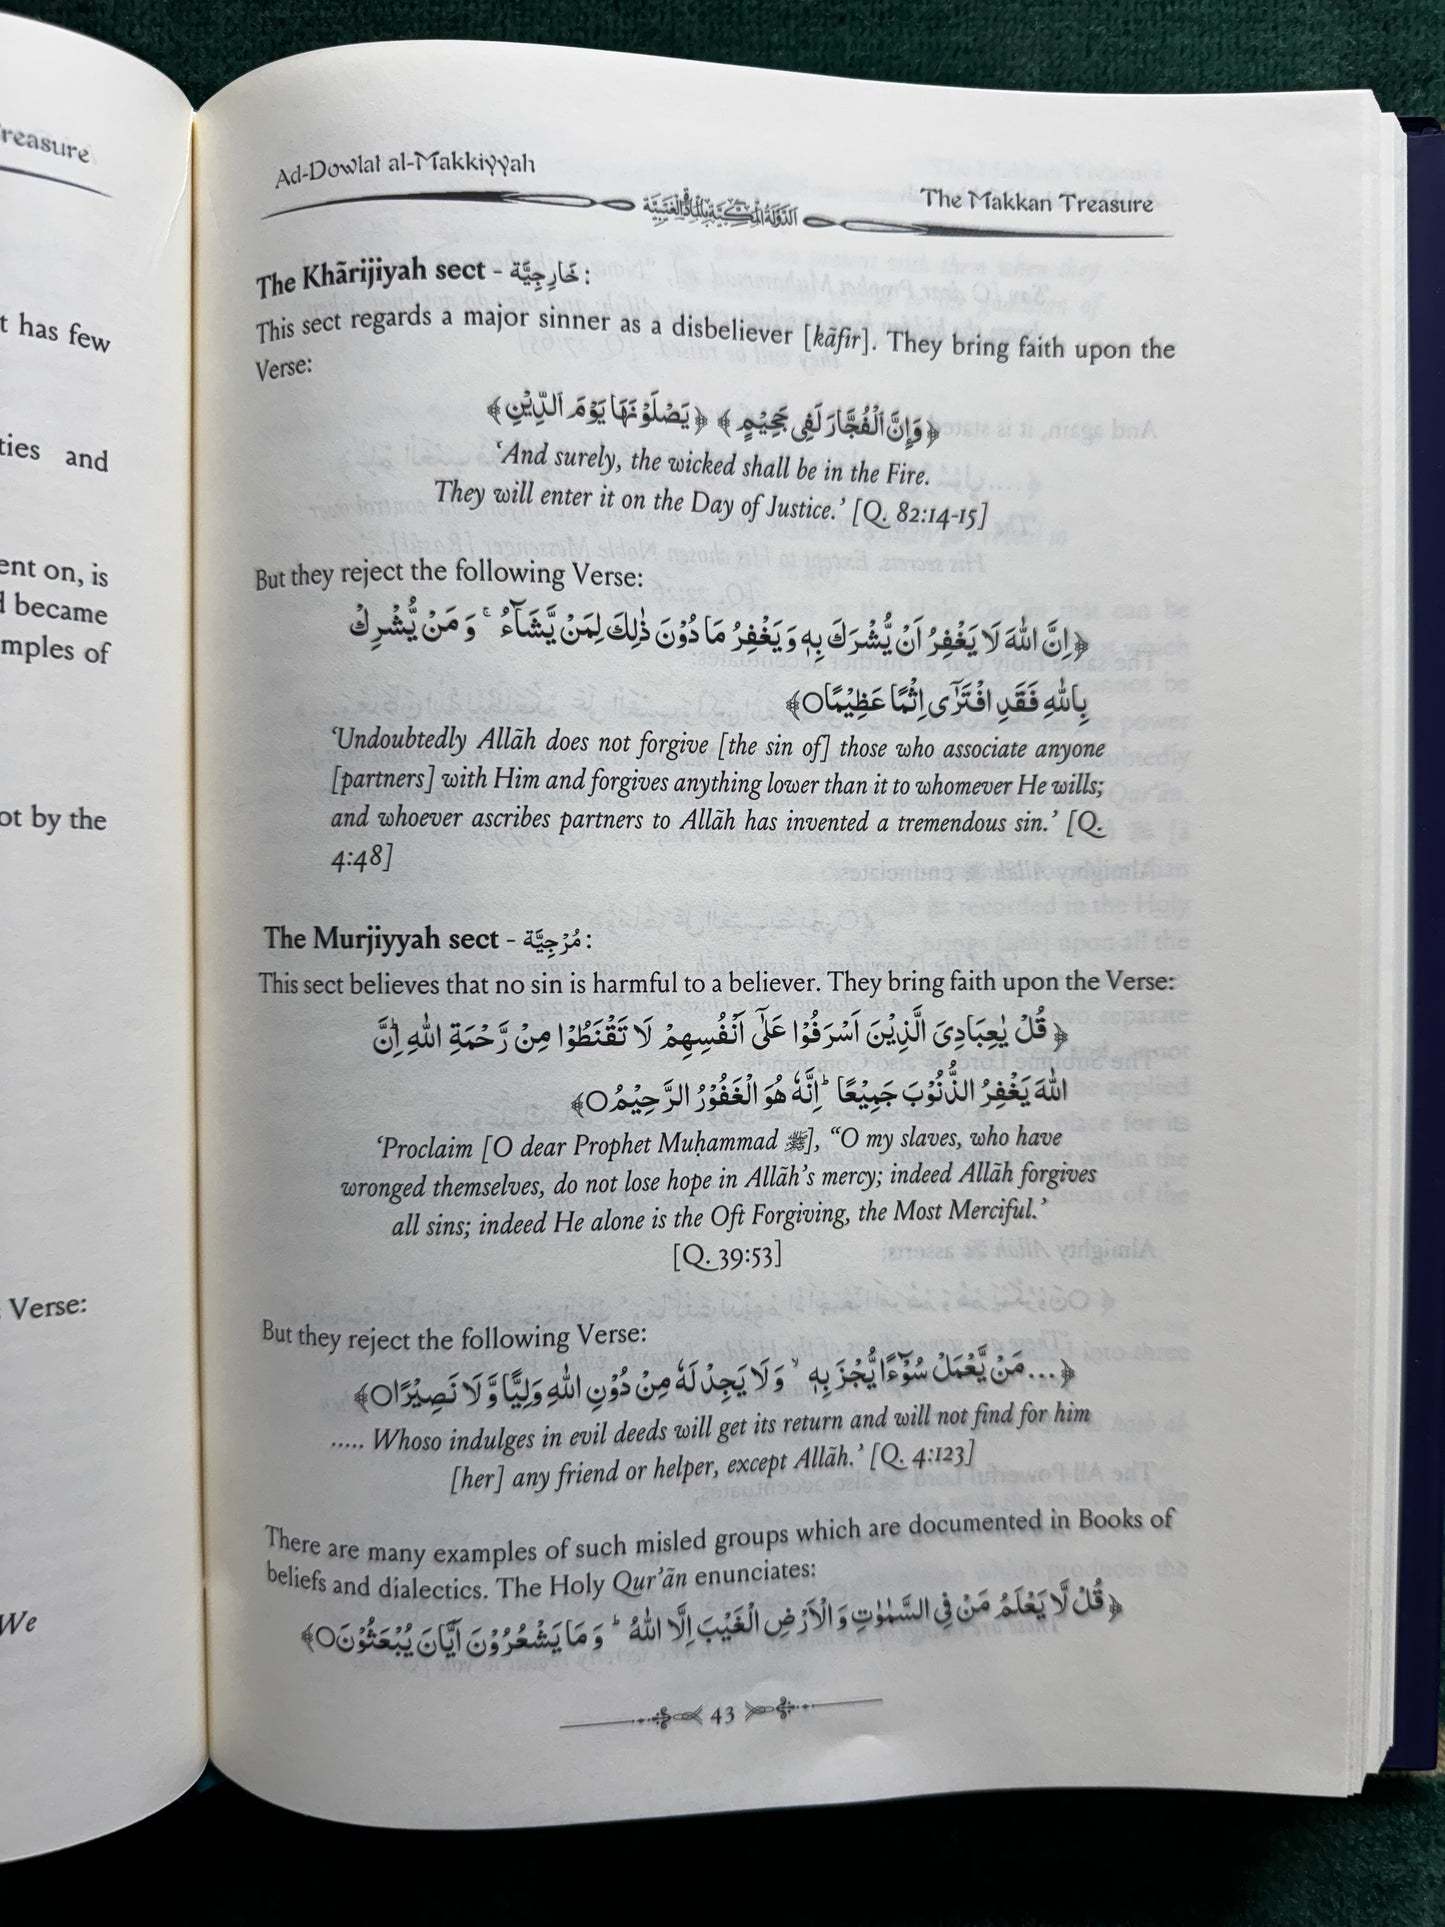 Treasure
t has few
ties and
ent on, is
d became
mples of
ot by the
Verse:
We
Ad-Dowlat al-Makkiyyah
The Makkan Treasure
The Khārijiyah sect - خَارِجِيَّة:
This sect regards a major sinner as a disbeliever [kāfir]. They bring faith upon the
Verse:
﴿وَإِنَّ الْفُجَّارَ لَفِي جَحِيْمٍ﴾ ﴿يَصْلَوْنَهَا يَوْمَ الدِّيْنِ﴾
‘And surely, the wicked shall be in the Fire.
They will enter it on the Day of Justice.’ [Q. 82:14-15]
But they reject the following Verse:
﴿اِنَّ اللّٰهَ لَا يَغْفِرُ اَنْ يُّشْرَكَ بِهٖ وَ يَغْفِرُ مَا دُوْنَ ذٰلِكَ لِمَنْ يَّشَآءُ ۚ وَ مَنْ يُّشْرِكْ
بِاللّٰهِ فَقَدِ افْتَرٰۤى اِثْمًا عَظِيْمًا○﴾
‘Undoubtedly Allāh does not forgive [the sin of] those who associate anyone
[partners] with Him and forgives anything lower than it to whomever He wills;
and whoever ascribes partners to Allāh has invented a tremendous sin.’ [Q.
4:48]
The Murjiyyah sect - مُرْجِيَّة:
This sect believes that no sin is harmful to a believer. They bring faith upon the Verse:
﴿قُلْ يٰعِبَادِيَ الَّذِيْنَ اَسْرَفُوْا عَلٰۤى اَنْفُسِهِمْ لَا تَقْنَطُوْا مِنْ رَّحْمَةِ اللّٰهِ ؕ اِنَّ
اللّٰهَ يَغْفِرُ الذُّنُوْبَ جَمِيْعًا ؕ اِنَّهٗ هُوَ الْغَفُوْرُ الرَّحِيْمُ○﴾
‘Proclaim [O dear Prophet Muḥammad ﷺ], “O my slaves, who have
wronged themselves, do not lose hope in Allāh’s mercy; indeed Allāh forgives
all sins; indeed He alone is the Oft Forgiving, the Most Merciful.’
[Q. 39:53]
But they reject the following Verse:
﴿... مَنْ يَّعْمَلْ سُوْٓءًا يُّجْزَ بِهٖ ۙ وَ لَا يَجِدْ لَهٗ مِنْ دُوْنِ اللّٰهِ وَلِيًّا وَّ لَا نَصِيْرًا○﴾
..... Whoso indulges in evil deeds will get its return and will not find for him
[her] any friend or helper, except Allāh.’ [Q. 4:123]
There are many examples of such misled groups which are documented in Books of
beliefs and dialectics. The Holy Qur’ān enunciates:
﴿قُلْ لَّا يَعْلَمُ مَنْ فِي السَّمٰوٰتِ وَ الْاَرْضِ الْغَيْبَ اِلَّا اللّٰهُ ؕ وَ مَا يَشْعُرُوْنَ اَيَّانَ يُبْعَثُوْنَ○﴾
43